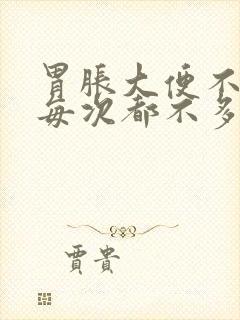 胃脹大便不
每次都不多
賈貴